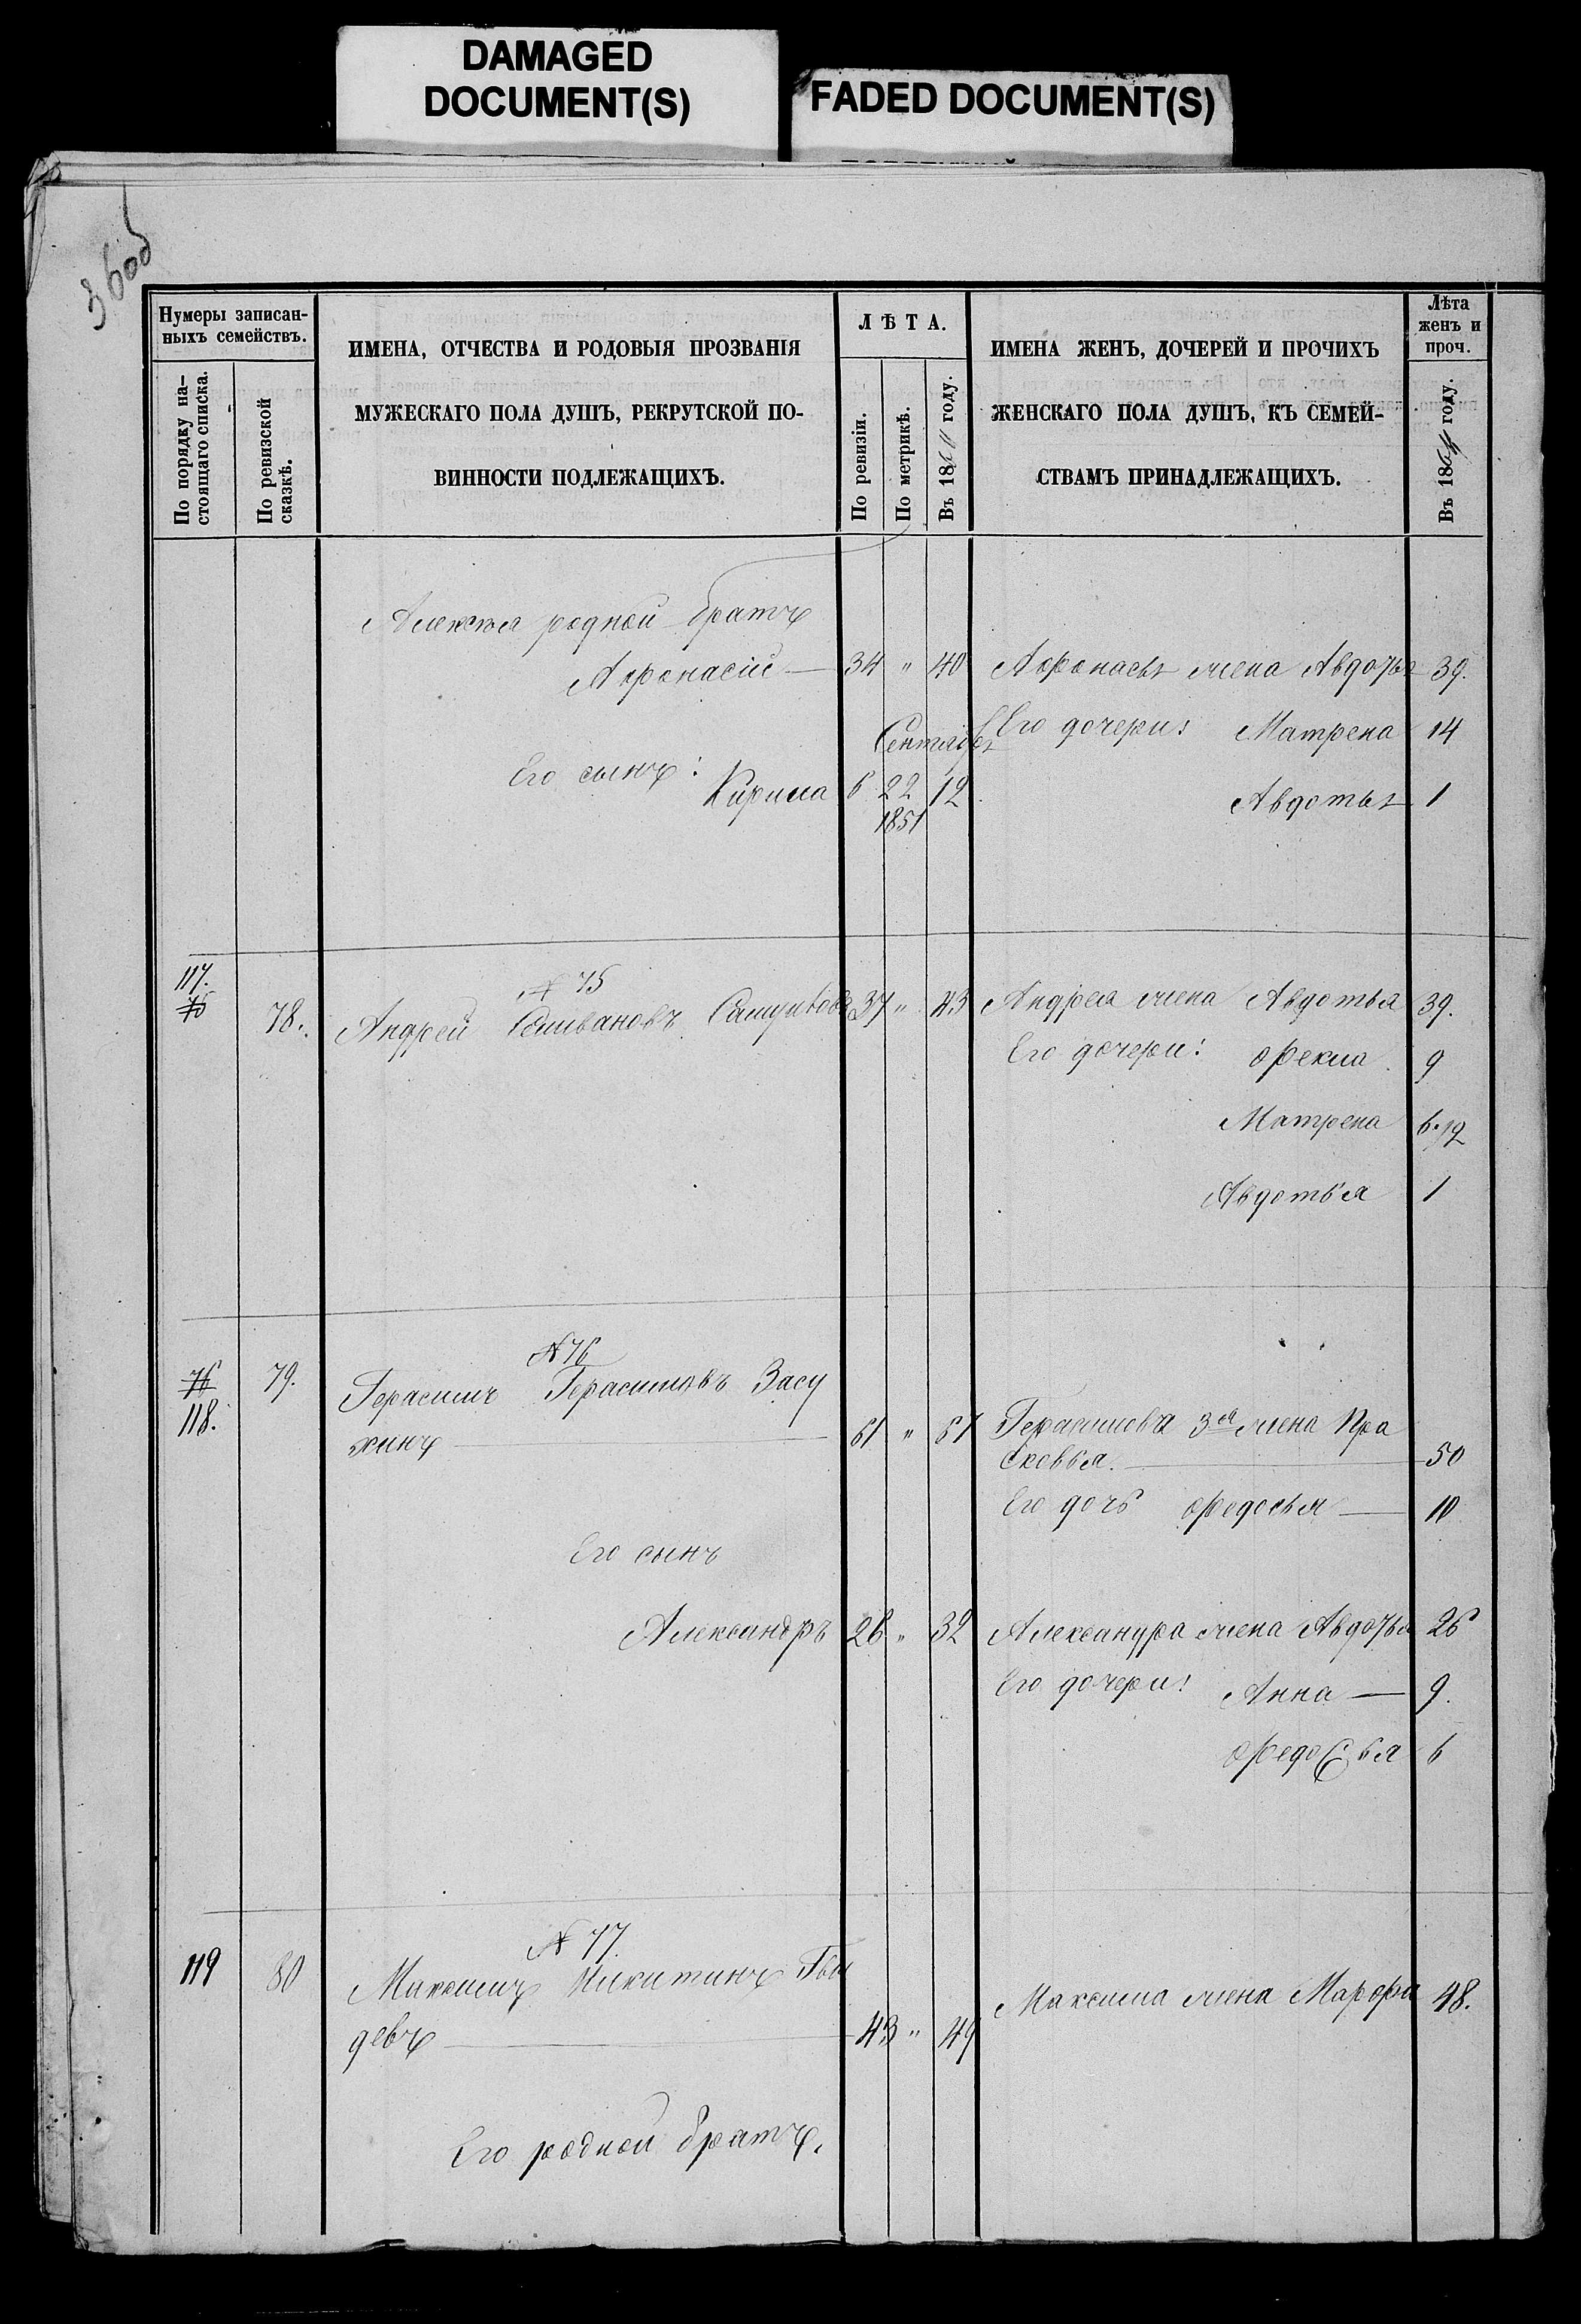 DAMAGED
DOCUMENT(S)
FADED DOCUMENT(S)
360б
Нумеры записан-
ныхъ семействъ.
По порядку на-
стоящаго списка.
По ревизской
сказкѣ.
ИМЕНА, ОТЧЕСТВА И РОДОВЫЯ ПРОЗВАНІЯ
МУЖЕСКАГО ПОЛА ДУШЪ, РЕКРУТСКОЙ ПО-
ВИННОСТИ ПОДЛЕЖАЩИХЪ.
ЛѢТА.
По ревизіи.
По метрикѣ.
Въ 18 году.
ИМЕНА ЖЕНЪ, ДОЧЕРЕЙ И ПРОЧИХЪ
ЖЕНСКАГО ПОЛА ДУШЪ, КЪ СЕМЕЙ-
СТВАМЪ ПРИНАДЛЕЖАЩИХЪ.
Лѣта
женъ и
проч.
Въ 1864 году.
Алексѣя родной братъ
Афонасій — 34 " 40 Афонасья жена Авдотья 39.
Его дочери: Матрена 14
Сентября
Его сынъ: Кирила 6 22 12 Авдотья 1
1851
117.
75
№ 75
78. Андрей 37 " 43 Андрея жена Авдотья 39.
Его дочери: Фекла 9
Матрена 6.
Авдотья 1
№ 76
76 79. Герасимъ Герасимовъ Засу
118.
хинъ — 61 " 67 Герасимова 3я жена Пра
сковья. — 50
Его дочь Федосья — 10
Его сынъ
Александръ 26 " 32 Александра жена Авдотья 26
Его дочери: Анна — 9.
Федосья 6
№ 77.
119 80 Максимъ Никитинъ Гвы
девъ — 43 " 49 Максима жена Марфа 48.
Его родной братъ.